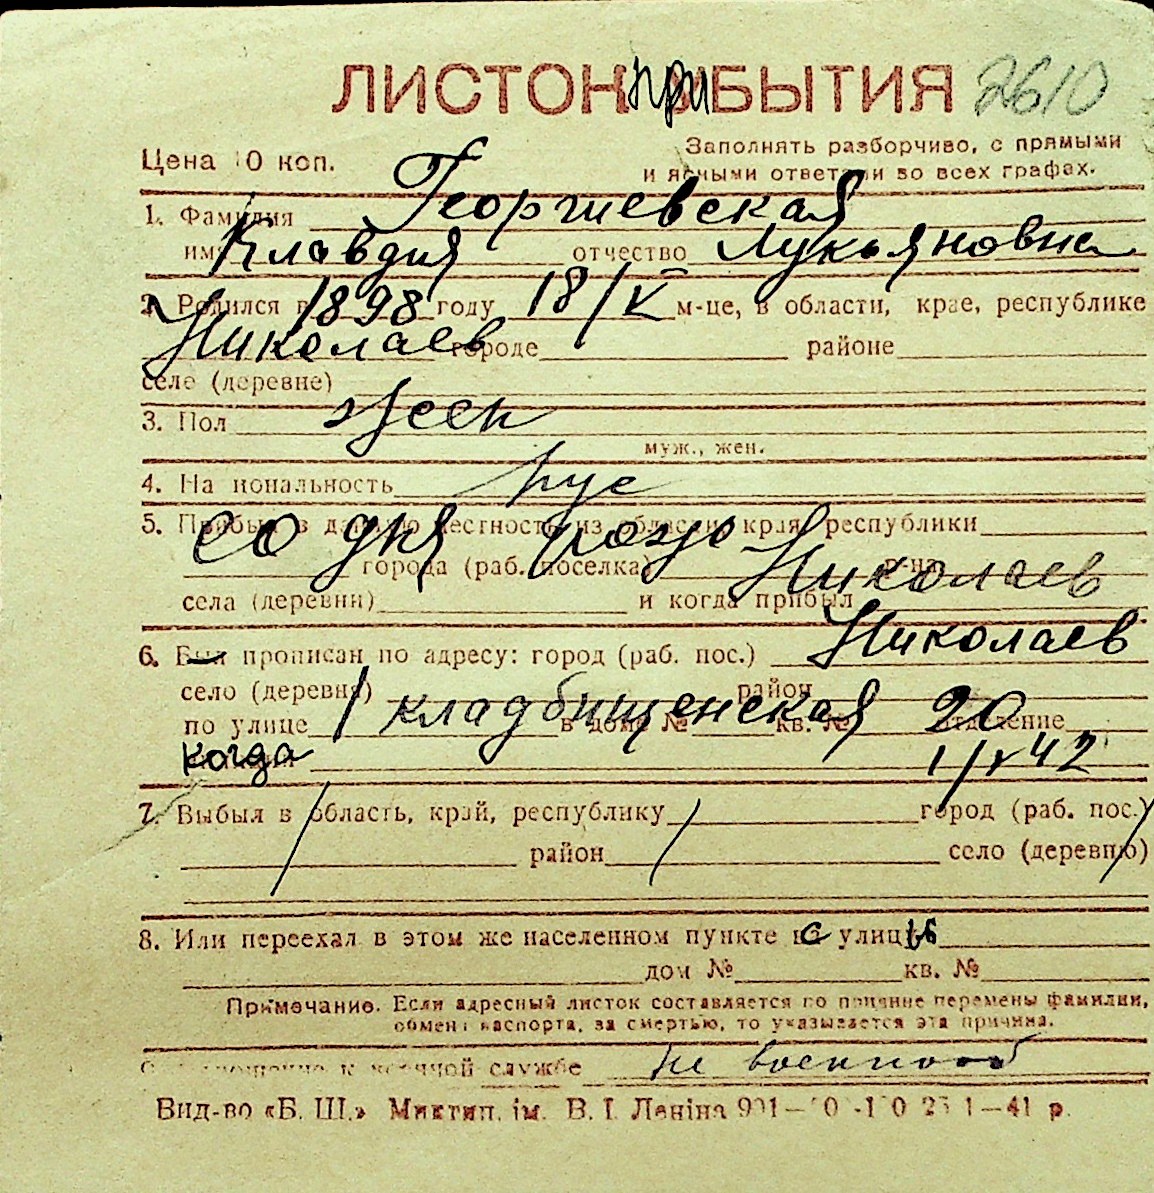 ЛИСТОК приБЫТИЯ 2610
Цена 10 коп.
Заполнять разборчиво, с прямыми
и ясными ответами во всех графах.
1. Фамилия Георгиевская
имя Клавдия отчество Лукьяновна
2. Родился в 1898 году 18/V м-це, в области, крае, республике
Николаев городе районе
селе (деревне)
3. Пол жен
муж., жен.
4. Национальность рус
5. Прибыл в данную местность из области, края, республики
со дня рожд Николаев
города (раб. поселка) р-на
села (деревни) и когда прибыл
6. Был прописан по адресу: город (раб. пос.) Николаев
село (деревня) район
по улице 1 кладбищенская в доме № кв. № 20 отделение
когда 1/V 42
7. Выбыл в область, край, республику город (раб. пос.)
район село (деревню)
8. Или переехал в этом же населенном пункте с улицы
дом № кв. №
Примечание. Если адресный листок составляется по причине перемены фамилии,
обмен паспорта, за смертью, то указывается эта причина.
службе не военнооб
Вид-во «Б. Ш.» Миктип. ім. В. І. Леніна 1—41 р.